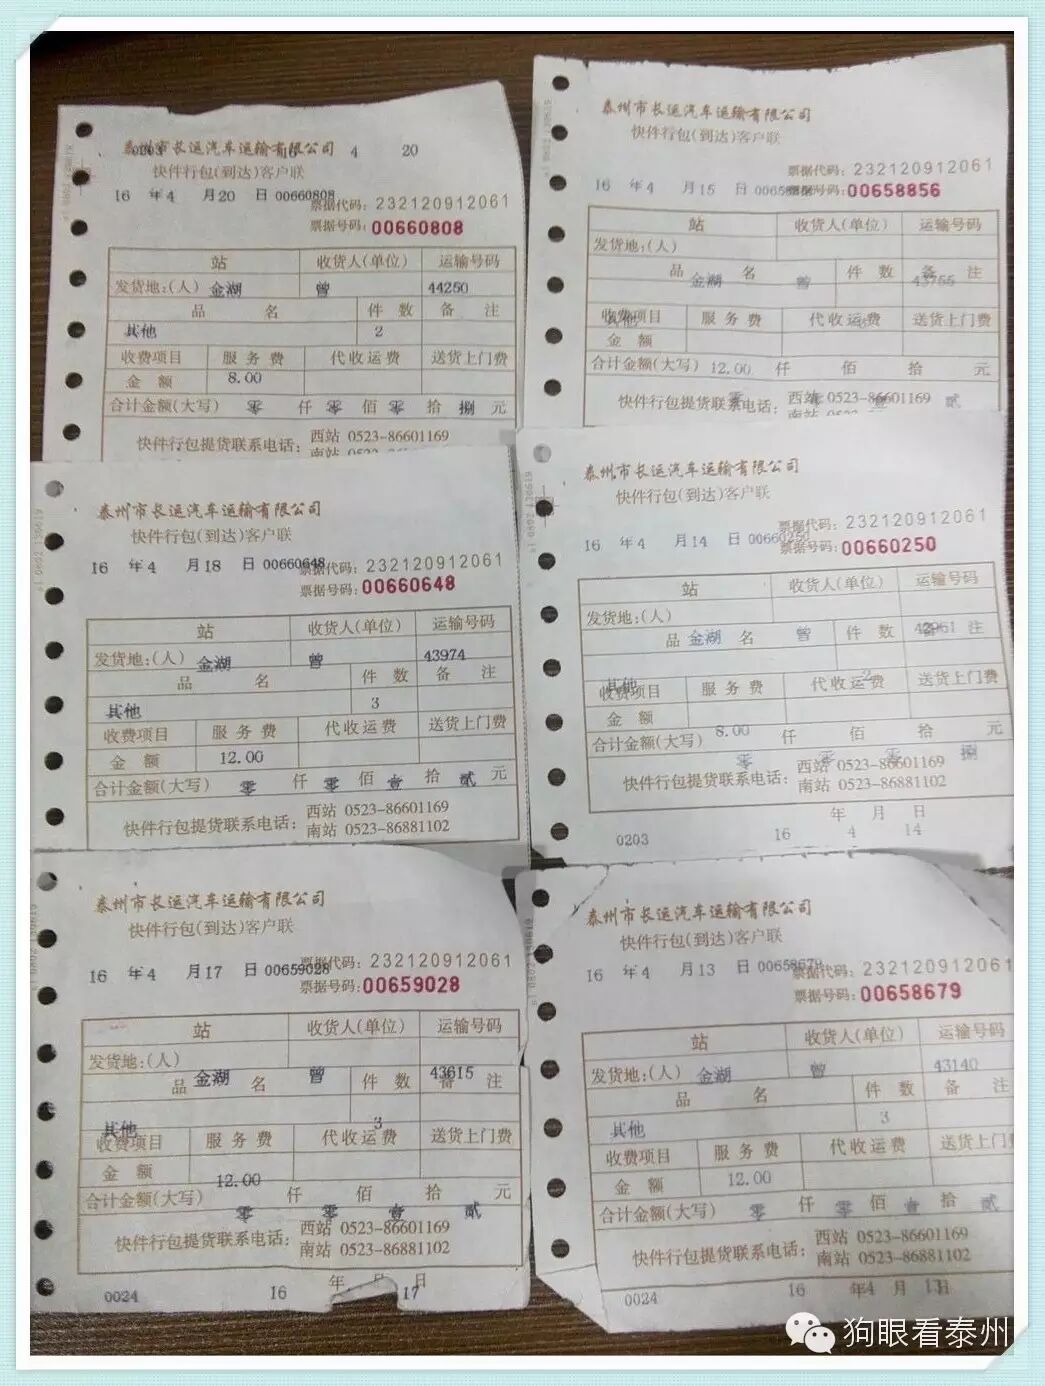 泰州市长运汽车运输有限公司
0203 16 4 20
快件行包(到达)客户联
16 年4 月20 日 00660808
票据代码: 232120912061
票据号码: 00660808
站 收货人(单位) 运输号码
发货地:(人) 金湖 曾 44250
品 名 件 数 备 注
其他 2
收费项目 服 务 费 代收运费 送货上门费
金 额 8.00
合计金额(大写) 零 仟 零 佰 零 拾 捌 元
快件行包提货联系电话: 西站 0523-86601169
泰州市长运汽车运输有限公司
快件行包(到达)客户联
16 年4 月15 日 00658856
票据代码: 232120912061
票据号码: 00658856
站 收货人(单位) 运输号码
发货地:(人)
品 名 件 数 备 注
金湖 曾 43755
收费项目 服 务 费 代收运费 送货上门费
其他
金 额
合计金额(大写) 12.00 仟 佰 拾 元
零 零 壹 贰
快件行包提货联系电话: 西站 0523-86601169
泰州市长运汽车运输有限公司
快件行包(到达)客户联
16 年4 月18 日 00660648
票据代码: 232120912061
票据号码: 00660648
站 收货人(单位) 运输号码
发货地:(人) 金湖 曾 43974
品 名 件 数 备 注
其他 3
收费项目 服 务 费 代收运费 送货上门费
金 额 12.00
合计金额(大写) 零 仟 零 佰 壹 拾 贰 元
快件行包提货联系电话: 西站 0523-86601169
南站 0523-86881102
泰州市长运汽车运输有限公司
快件行包(到达)客户联
16 年4 月14 日 00660250
票据代码: 232120912061
票据号码: 00660250
站 收货人(单位) 运输号码
发货地:(人)
品 金湖 名 曾 件 数 备 注
其他 2
收费项目 服 务 费 代收运费 送货上门费
金 额
合计金额(大写) 8.00 仟 佰 拾 元
零 零 零 捌
快件行包提货联系电话: 西站 0523-86601169
南站 0523-86881102
年 月 日
0203 16 4 14
泰州市长运汽车运输有限公司
快件行包(到达)客户联
16 年4 月17 日 00659028
票据代码: 232120912061
票据号码: 00659028
站 收货人(单位) 运输号码
发货地:(人)
品 金湖 名 曾 件 数 43615 备 注
其他 3
收费项目 服 务 费 代收运费 送货上门费
金 额 12.00
合计金额(大写) 仟 佰 拾 元
零 零 壹 贰
快件行包提货联系电话: 西站 0523-86601169
南站 0523-86881102
年 月 日
0024 16 17
泰州市长运汽车运输有限公司
快件行包(到达)客户联
16 年4 月13 日 00658679
票据代码: 232120912061
票据号码: 00658679
站 收货人(单位) 运输号码
发货地:(人) 金湖 曾 43140
品 名 件 数 备 注
其他 3
收费项目 服 务 费 代收运费 送货上门费
金 额 12.00
合计金额(大写) 零 仟 零 佰 壹 拾 贰 元
快件行包提货联系电话: 西站 0523-86601169
南站 0523-86881102
0024 16 年4 月 13日
狗眼看泰州